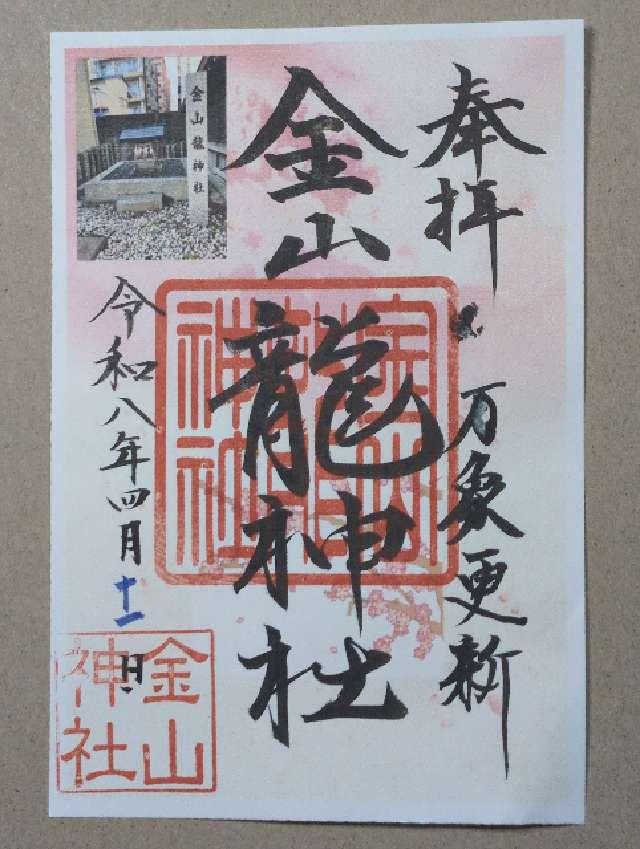 奉拝
万象更新
金山龍神社
金山龍神社
金山龍神社
令和八年四月十一日
金山
神社